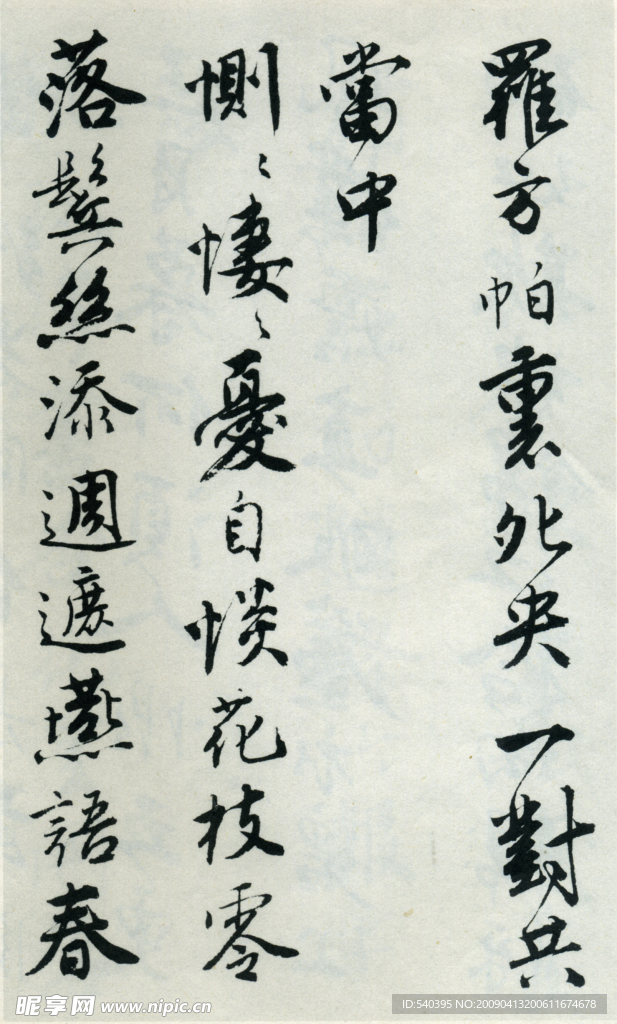 羅方帕裹夗央一對共
當中
惻〻悽〻憂自惔花枝零
落鬢絲添週遮燕語春
昵享网 www.nipic.cn
ID:540395 NO:20090413200611674678